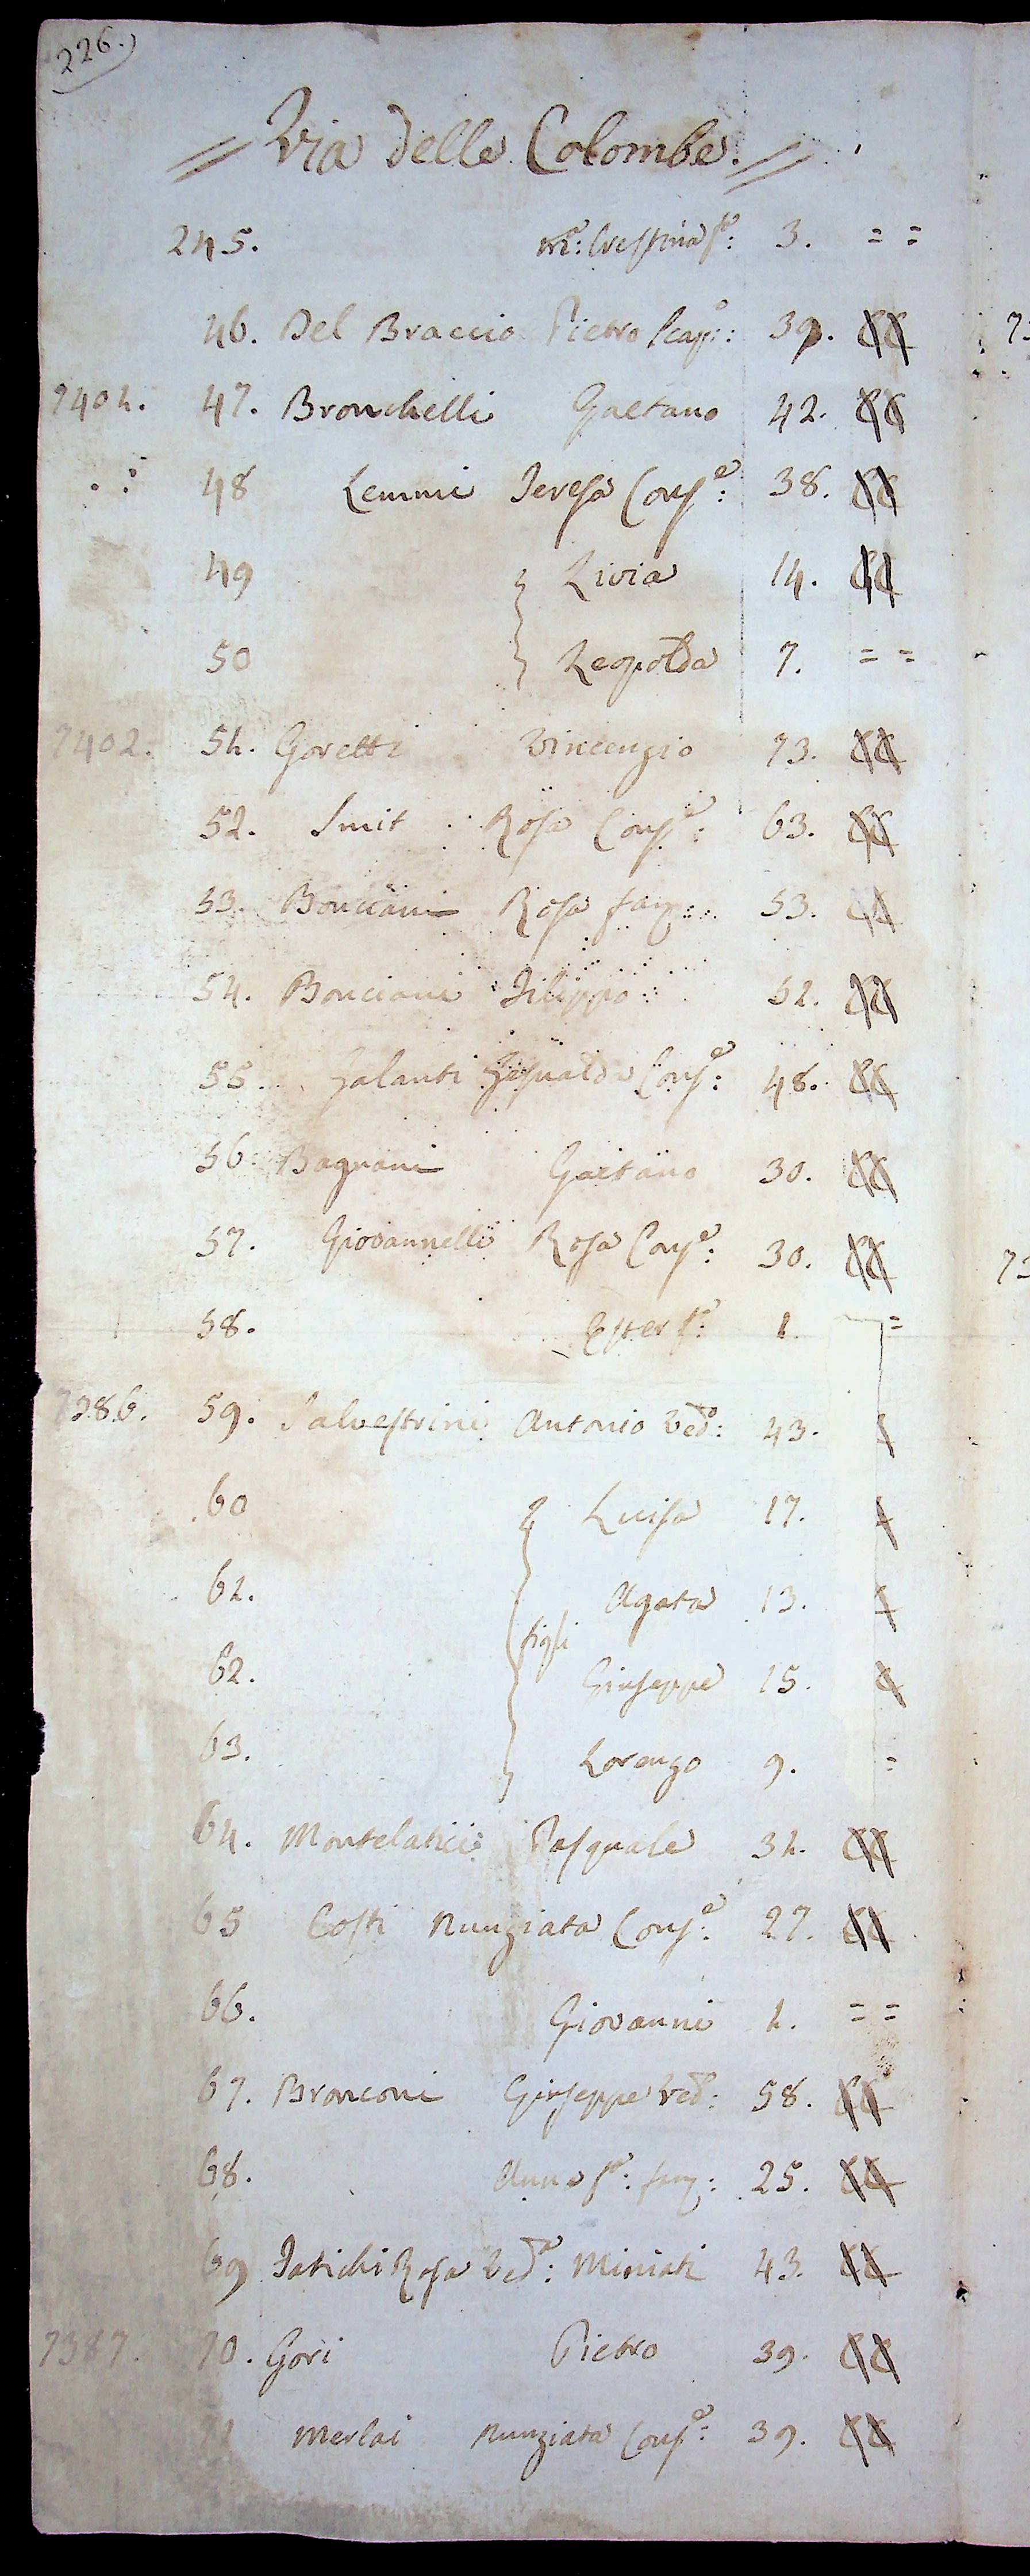 226.
Via delle Colombe.
245. M.ª: Crespina f.ª: 3. = =
46. Del Braccio Pietro Scap.º: 39. CC
7401. 47. Bronchelli Gaetano 42. CC
48 Lemmi Teresa Cons.e: 38. CC
49 Livia 14. CC
50 Leopolda 7. = =
7402. 51. Goretti Vincenzio 73. CC
52. Smit Rosa Cons.e: 63. CC
53. Bonciani Rosa fan: 53. CC
54. Bonciani Filippo 52. CC
55. Galanti Gesualda Cons.e: 48. CC
56. Bagnani Gaetano 30. CC
57. Giovannelli Rosa Cons.e: 30. CC
58. Ester f.ª: 1. =
7386. 59. Salvestrini Antonio Ved.º: 43. C
60 Luisa 17. C
61. Agata 13. C
figli
62. Giuseppe 15. C
63. Lorenzo 9. =
64. Montelatici Pasquale 31. CC
65 Costi Nunziata Cons.e: 27. CC
66. Giovanni 1. = =
67. Bronconi Giuseppe Ved.º: 58. CC
68. Anna f.ª: fan: 25. CC
69 Tatichi Rosa Ved.ª: Miniati 43. CC
7387. 70. Gori Pietro 39. CC
71 Merlai Nunziata Cons.e: 39. CC